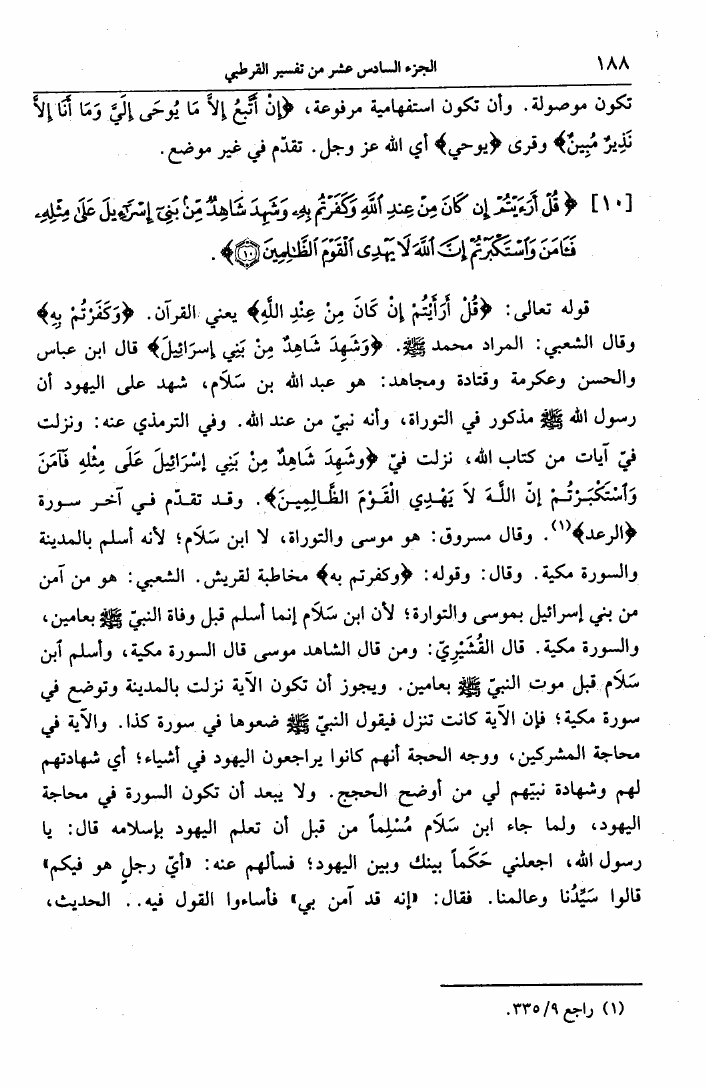 ١٨٨
الجزء السادس عشر من تفسير القرطبي
تكون موصولة. وأن تكون استفهامية مرفوعة، ﴿إِنْ أَتَّبِعُ إِلاَّ مَا يُوحَى إِلَيَّ وَمَا أَنَا إِلاَّ
نَذِيرٌ مُبِينٌ﴾ وقرى ﴿يوحي﴾ أي الله عز وجل. تقدّم في غير موضع.
[١٠] ﴿قُلْ أَرَءَيْتُمْ إِن كَانَ مِنْ عِندِ ٱللَّهِ وَكَفَرْتُم بِهِۦ وَشَهِدَ شَاهِدٌ مِّنۢ بَنِىٓ إِسْرَٰٓءِيلَ عَلَىٰ مِثْلِهِۦ
فَـَٔامَنَ وَٱسْتَكْبَرْتُمْ إِنَّ ٱللَّهَ لَا يَهْدِى ٱلْقَوْمَ ٱلظَّـٰلِمِينَ ١٠﴾.
قوله تعالى: ﴿قُلْ أَرَأَيْتُمْ إِنْ كَانَ مِنْ عِنْدِ اللَّهِ﴾ يعني القرآن. ﴿وَكَفَرْتُمْ بِهِ﴾
وقال الشعبي: المراد محمد ﷺ. ﴿وَشَهِدَ شَاهِدٌ مِنْ بَنِي إسرَائِيلَ﴾ قال ابن عباس
والحسن وعكرمة وقتادة ومجاهد: هو عبد الله بن سَلَام، شهد على اليهود أن
رسول الله ﷺ مذكور في التوراة، وأنه نبيّ من عند الله. وفي الترمذي عنه: ونزلت
فيّ آيات من كتاب الله، نزلت فيّ ﴿وشَهِدَ شَاهِدٌ مِنْ بَنِي إسْرَائِيلَ عَلَى مِثْلِهِ فَآمَنَ
وَٱسْتَكْبَرْتُمْ إنّ اللَّهَ لاَ يَهْدِي الْقَوْمَ الظَّالِمِينَ﴾. وقد تقدّم في آخر سورة
﴿الرعد﴾(١). وقال مسروق: هو موسى والتوراة، لا ابن سَلَام؛ لأنه أسلم بالمدينة
والسورة مكية. وقال: وقوله: ﴿وكفرتم به﴾ مخاطبة لقريش. الشعبي: هو من آمن
من بني إسرائيل بموسى والتوارة؛ لأن ابن سَلَام إنما أسلم قبل وفاة النبيّ ﷺ بعامين،
والسورة مكية. قال القُشَيْرِيّ: ومن قال الشاهد موسى قال السورة مكية، وأسلم ٱبن
سَلَام قبل موت النبيّ ﷺ بعامين. ويجوز أن تكون الآية نزلت بالمدينة وتوضع في
سورة مكية؛ فإن الآية كانت تنزل فيقول النبيّ ﷺ ضعوها في سورة كذا. والآية في
محاجة المشركين، ووجه الحجة أنهم كانوا يراجعون اليهود في أشياء؛ أي شهادتهم
لهم وشهادة نبيّهم لي من أوضح الحجج. ولا يبعد أن تكون السورة في محاجة
اليهود، ولما جاء ابن سَلَام مُسْلِماً من قبل أن تعلم اليهود بإسلامه قال: يا
رسول الله، اجعلني حَكَماً بينك وبين اليهود؛ فسألهم عنه: «أيّ رجلٍ هو فيكم»
قالوا سَيِّدُنا وعالمنا. فقال: «إنه قد آمن بي» فأساءوا القول فيه.. الحديث،
(١) راجع ٣٣٥/٩.